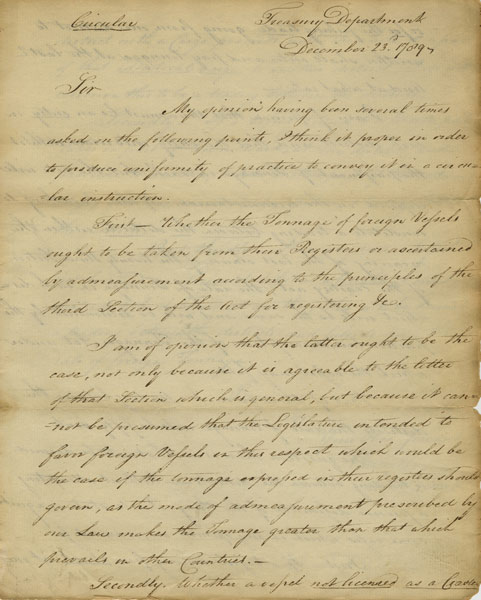 Circular
Treasury Department
December 23.d 1789
Sir
My opinion having been several times
asked on the following points, I think it proper in order
to produce uniformity of practice to convey it in a circu-
lar instruction.
First — Whether the Tonnage of foreign Vessels
ought to be taken from their Registers or ascertained
by admeasurement according to the principles of the
third Section of the Act for registering &c.
I am of opinion that the latter ought to be the
case, not only because it is agreeable to the letter
of that Section which is general, but because it can-
-not be presumed that the Legislature intended to
favor foreign Vessels in this respect which would be
the case if the tonnage expressed in their registers should
govern, as the mode of admeasurement prescribed by
our Laws makes the Tonnage greater than that which
prevails in other Countries.—
Secondly. Whether a vessel not licensed as a